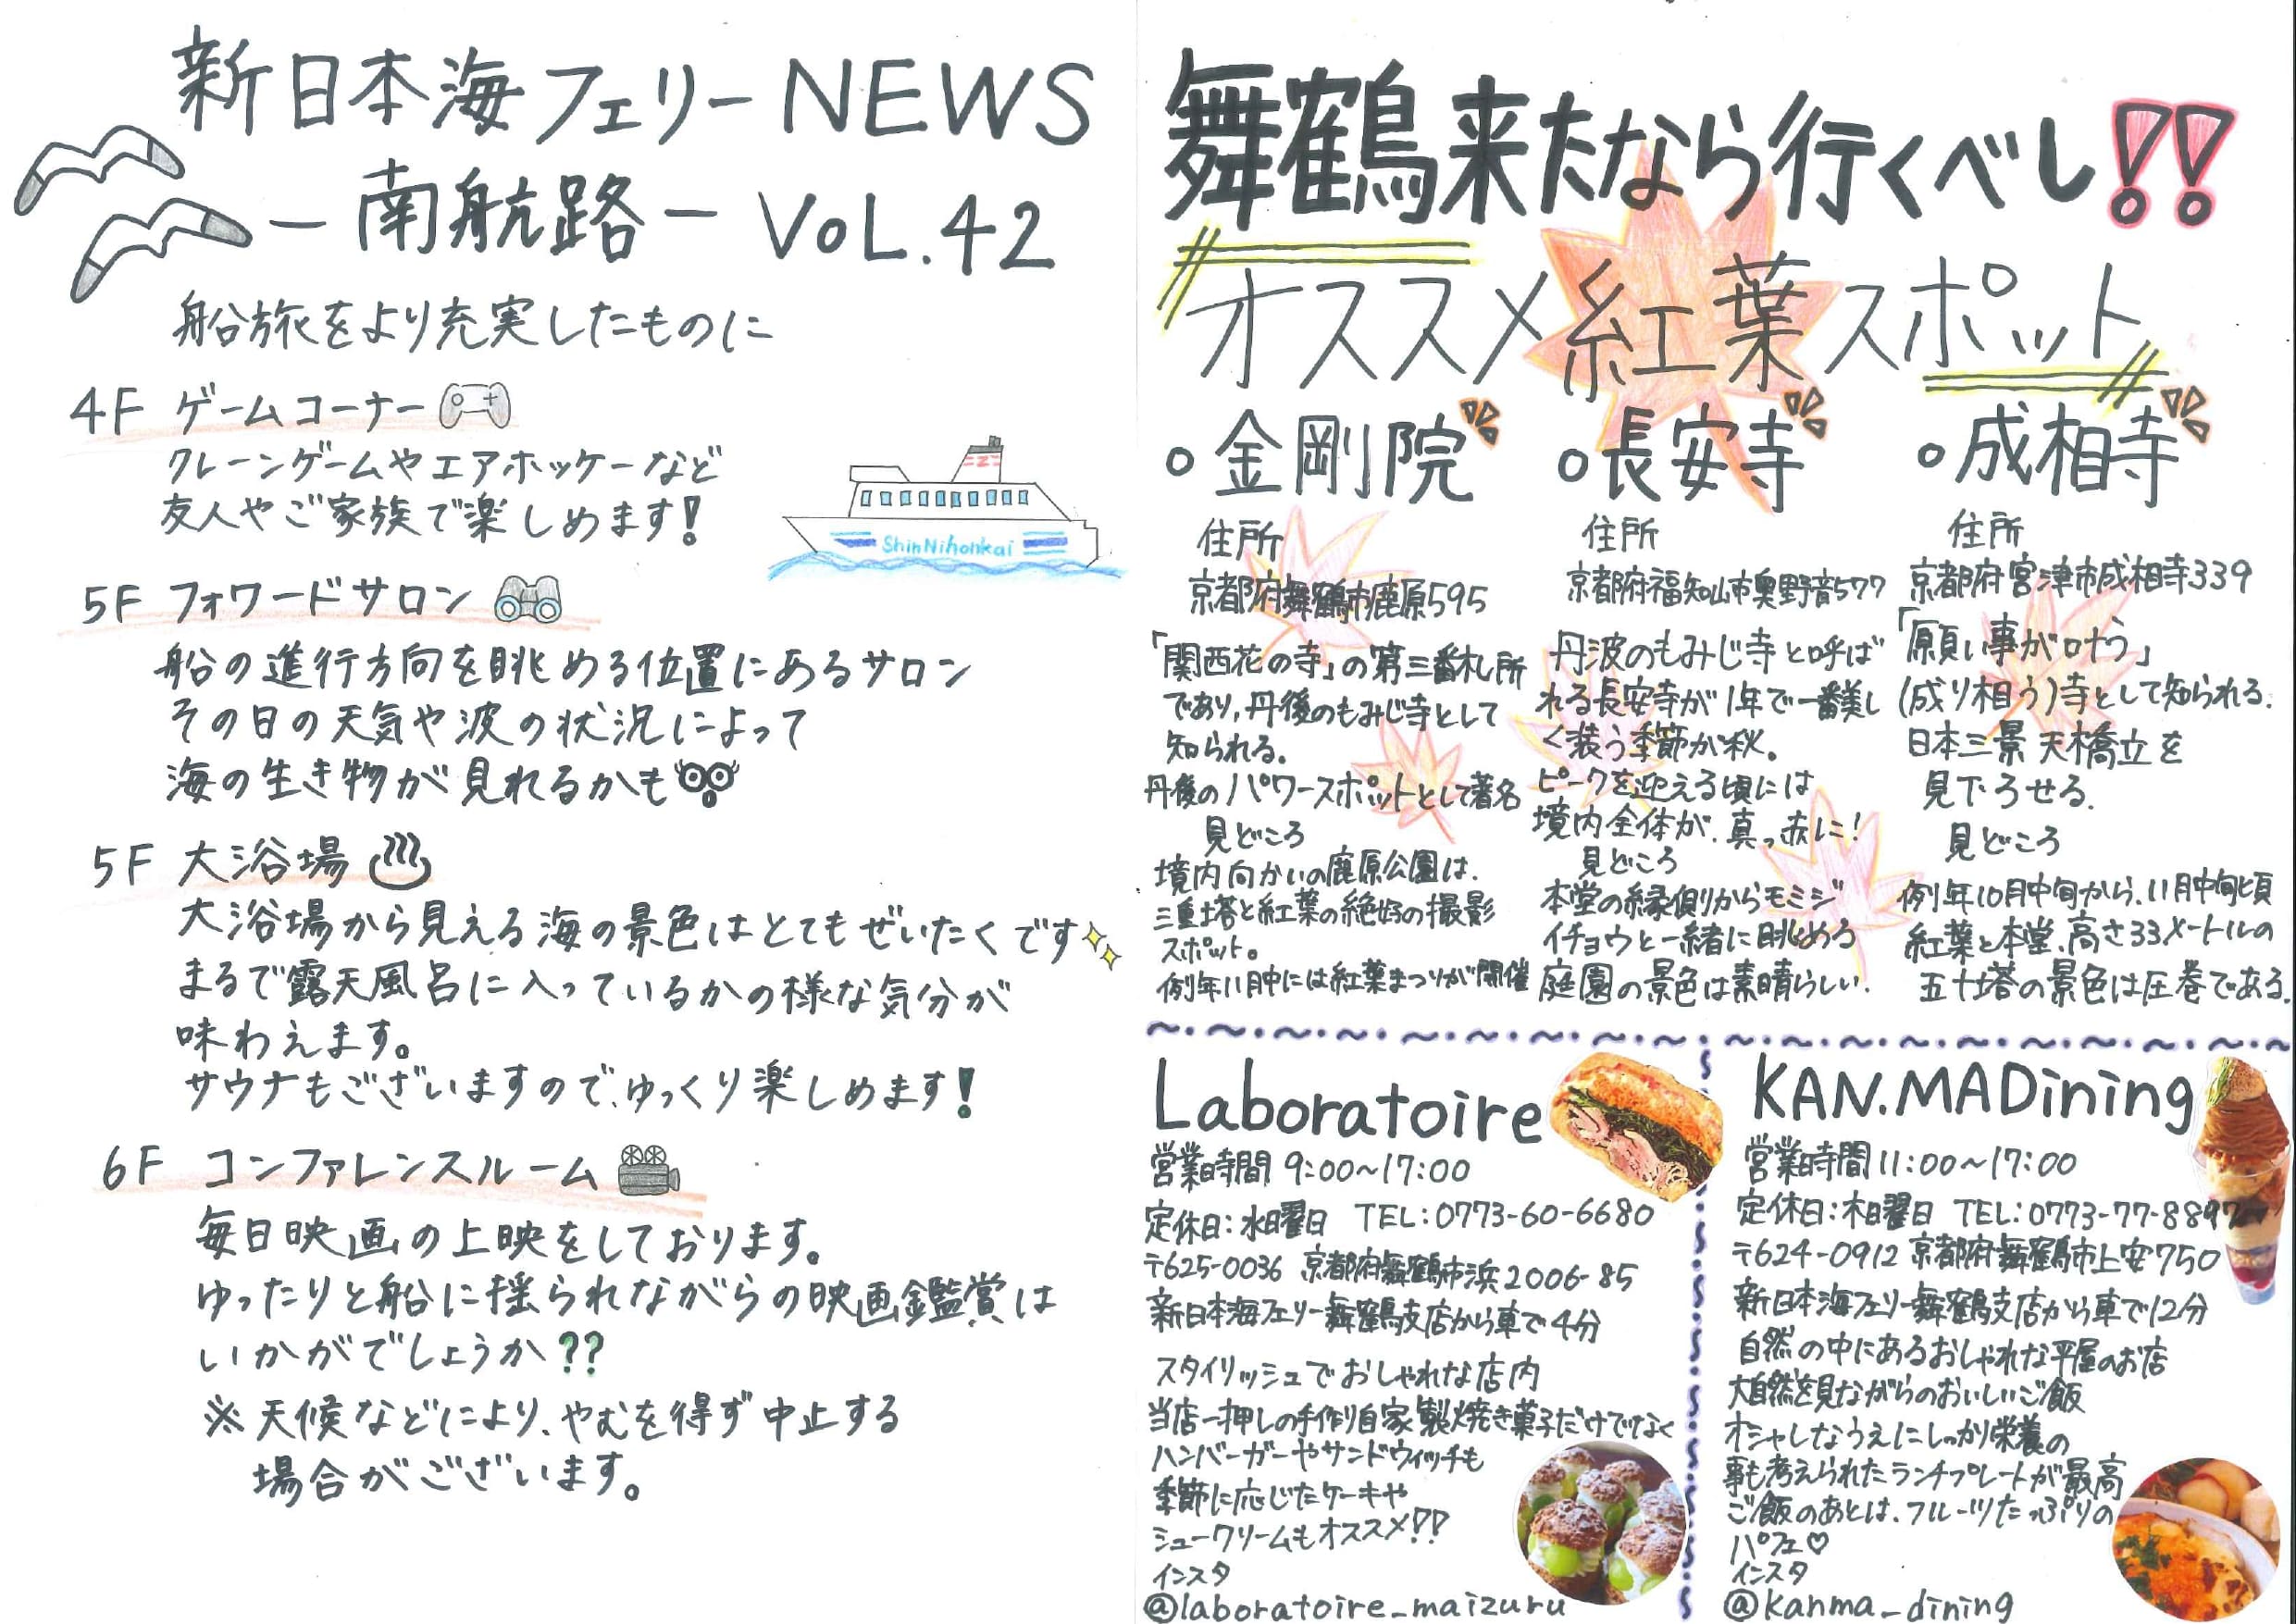 新日本海フェリーNEWS
－南航路－ VoL.42
船旅をより充実したものに
4F ゲームコーナー
クレーンゲームやエアホッケーなど
友人やご家族で楽しめます!
ShinNihonkai
5F フォワードサロン
船の進行方向を眺める位置にあるサロン
その日の天気や波の状況によって
海の生き物が見れるかも
5F 大浴場
大浴場から見える海の景色はとてもぜいたくです
まるで露天風呂に入っているかの様な気分が
味わえます。
サウナもございますので、ゆっくり楽しめます!
6F コンファレンスルーム
毎日映画の上映をしております。
ゆったりと船に揺られながらの映画鑑賞は
いかがでしょうか??
※天候などにより、やむを得ず中止する
場合がございます。
舞鶴来たなら行くべし!!
オススメ紅葉スポット
○金剛院
住所
京都府舞鶴市鹿原595
「関西花の寺」の第三番札所
であり、丹後のもみじ寺として
知られる。
丹後のパワースポットとして著名
見どころ
境内向かいの鹿原公園は、
三重塔と紅葉の絶好の撮影
スポット。
例年11月中には紅葉まつりが開催
○長安寺
住所
京都府福知山市奥野部577
丹波のもみじ寺と呼ば
れる長安寺が1年で一番美し
く装う季節が秋。
ピークを迎える頃には
境内全体が、真っ赤に!
見どころ
本堂の縁側からモミジ
イチョウと一緒に眺めろ
庭園の景色は素晴らしい.
○成相寺
住所
京都府宮津市成相寺339
「願い事が叶う」
(成り相う)寺として知られる.
日本三景 天橋立を
見下ろせる.
見どころ
例年10月中旬から、11月中旬頃
紅葉と本堂、高さ33メートルの
五十塔の景色は圧巻である.
Laboratoire
営業時間 9:00~17:00
定休日:水曜日 TEL:0773-60-6680
〒625-0036 京都府舞鶴市浜2006-85
新日本海フェリー舞鶴支店から車で4分
スタイリッシュでおしゃれな店内
当店一押しの手作り自家製焼き菓子だけでなく
ハンバーガーやサンドウィッチも
季節に応じたケーキや
シュークリームもオススメ!!
インスタ
@laboratoire_maizuru
KAN.MADining
営業時間11:00~17:00
定休日:木曜日 TEL:0773-77-8897
〒624-0912 京都府舞鶴市上安750
新日本海フェリー舞鶴支店から車で12分
自然の中にあるおしゃれな平屋のお店
大自然を見ながらのおいしいご飯
オシャレなうえにしっかり栄養の
事も考えられたランチプレートが最高
ご飯のあとは、フルーツたっぷりの
パフェ♡
インスタ
@kanma_dining